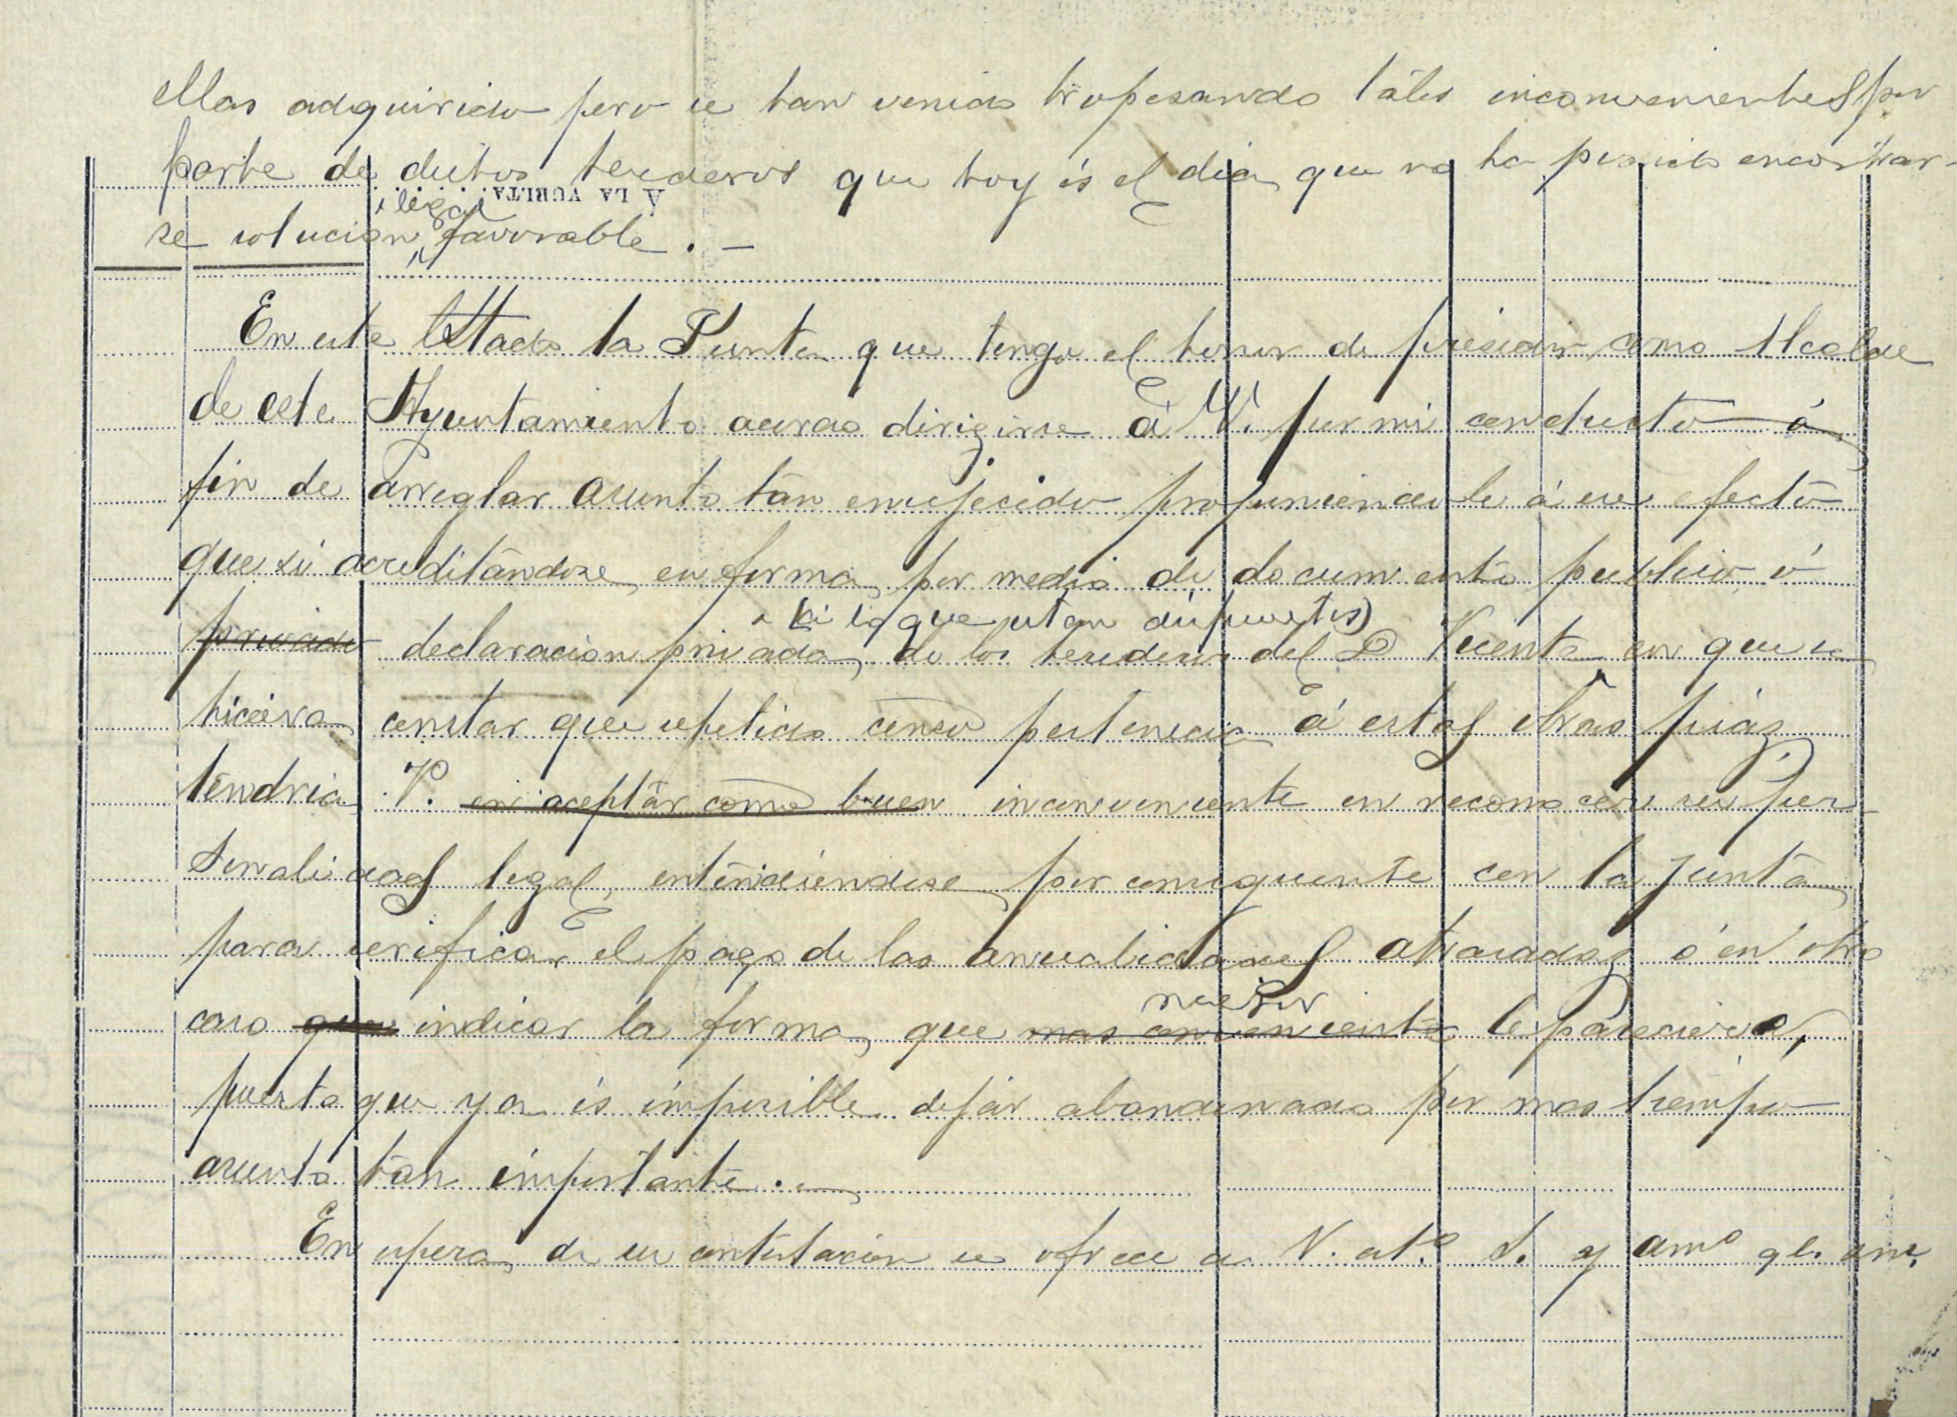 ellas adquirido pero se han venido tropesando táles inconvenientes por
parte de dichos herederos que hoy és el dia que no ha podido encontrar-
A LA VUELTA
legal
se solucion favorable. —
En este Estado la Junta que tengo el honor de presidir como Alcalde
de este Ayuntamiento acordó dirigirse á V. por mi conducto á
fin de arreglar asunto tán envejecido proponiendole á ese efecto
que si acreditándose en forma por medio de documento publico ó
(á lo que estan dispuestos)
privado declaracion privada de los herederos del D. Vicente en que se
hiciera constar que repetido censo pertenecia á estas obras piás
tendria V. en aceptár como buen inconveniente en reconocer su per-
sonalidad legal, entendiéndose por consiguiente con la Junta
para verificar el pago de las anualidades atrasadas ó en otro
mejor
caso que indicar la forma que mas conveniente le pareciera,
puesto que ya és imposible dejár abandonado por mas tiempo
asunto tan importante. —
En espera de su contestacion se ofrece a V. at.º S. y amº q.b. sm.